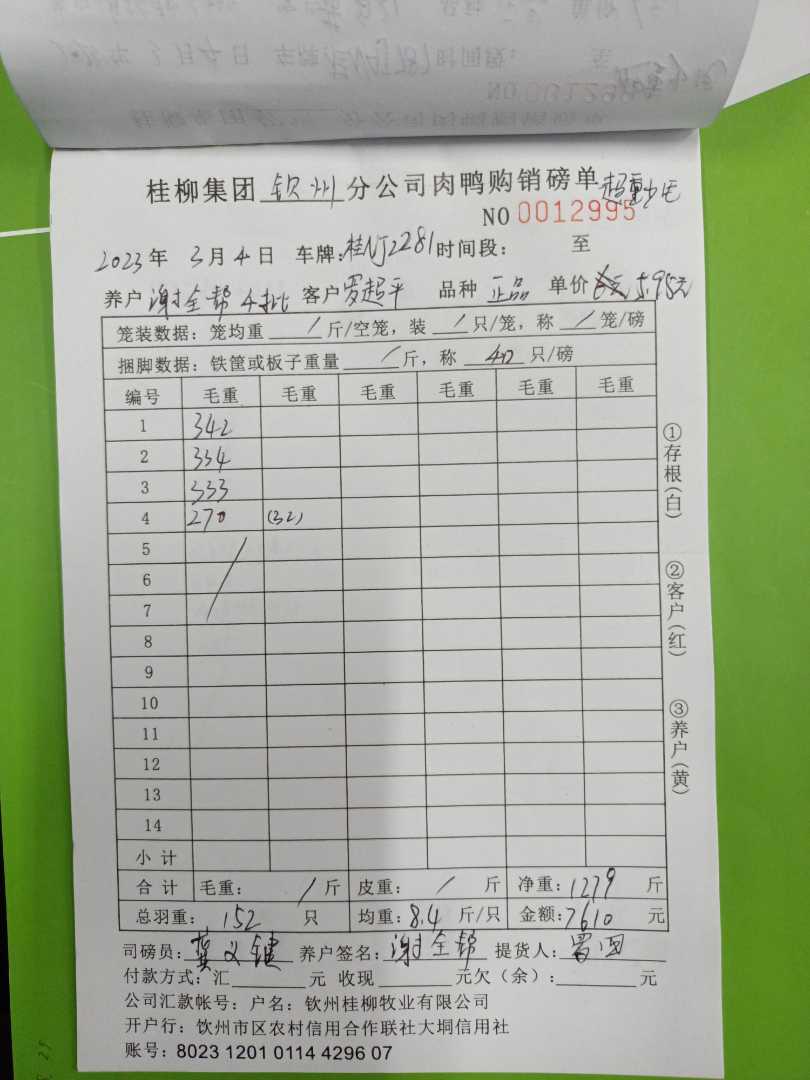 桂柳集团 钦州 分公司肉鸭购销磅单 超重少毛
NO 0012995
2023年 3月4日 车牌:桂NJ2281 时间段: 至
养户 谢全帮 4批 客户 罗超平 品种 正品 单价 5.95元
笼装数据: 笼均重 / 斤/空笼, 装 / 只/笼, 称 / 笼/磅
捆脚数据: 铁筐或板子重量 / 斤, 称 40 只/磅
编号 毛重 毛重 毛重 毛重 毛重 毛重
1 342
2 334
3 333
4 270 (32)
5
6
7
8
9
10
11
12
13
14
小计
合计 毛重: / 斤 皮重: / 斤 净重: 1279 斤
总羽重: 152 只 均重: 8.4 斤/只 金额: 7610 元
司磅员: 龚义键 养户签名: 谢全帮 提货人:
付款方式: 汇 元 收现 元欠(余): 元
公司汇款帐号: 户名: 钦州桂柳牧业有限公司
开户行: 钦州市区农村信用合作联社大垌信用社
账号: 8023 1201 0114 4296 07
①存根(白)
②客户(红)
③养户(黄)